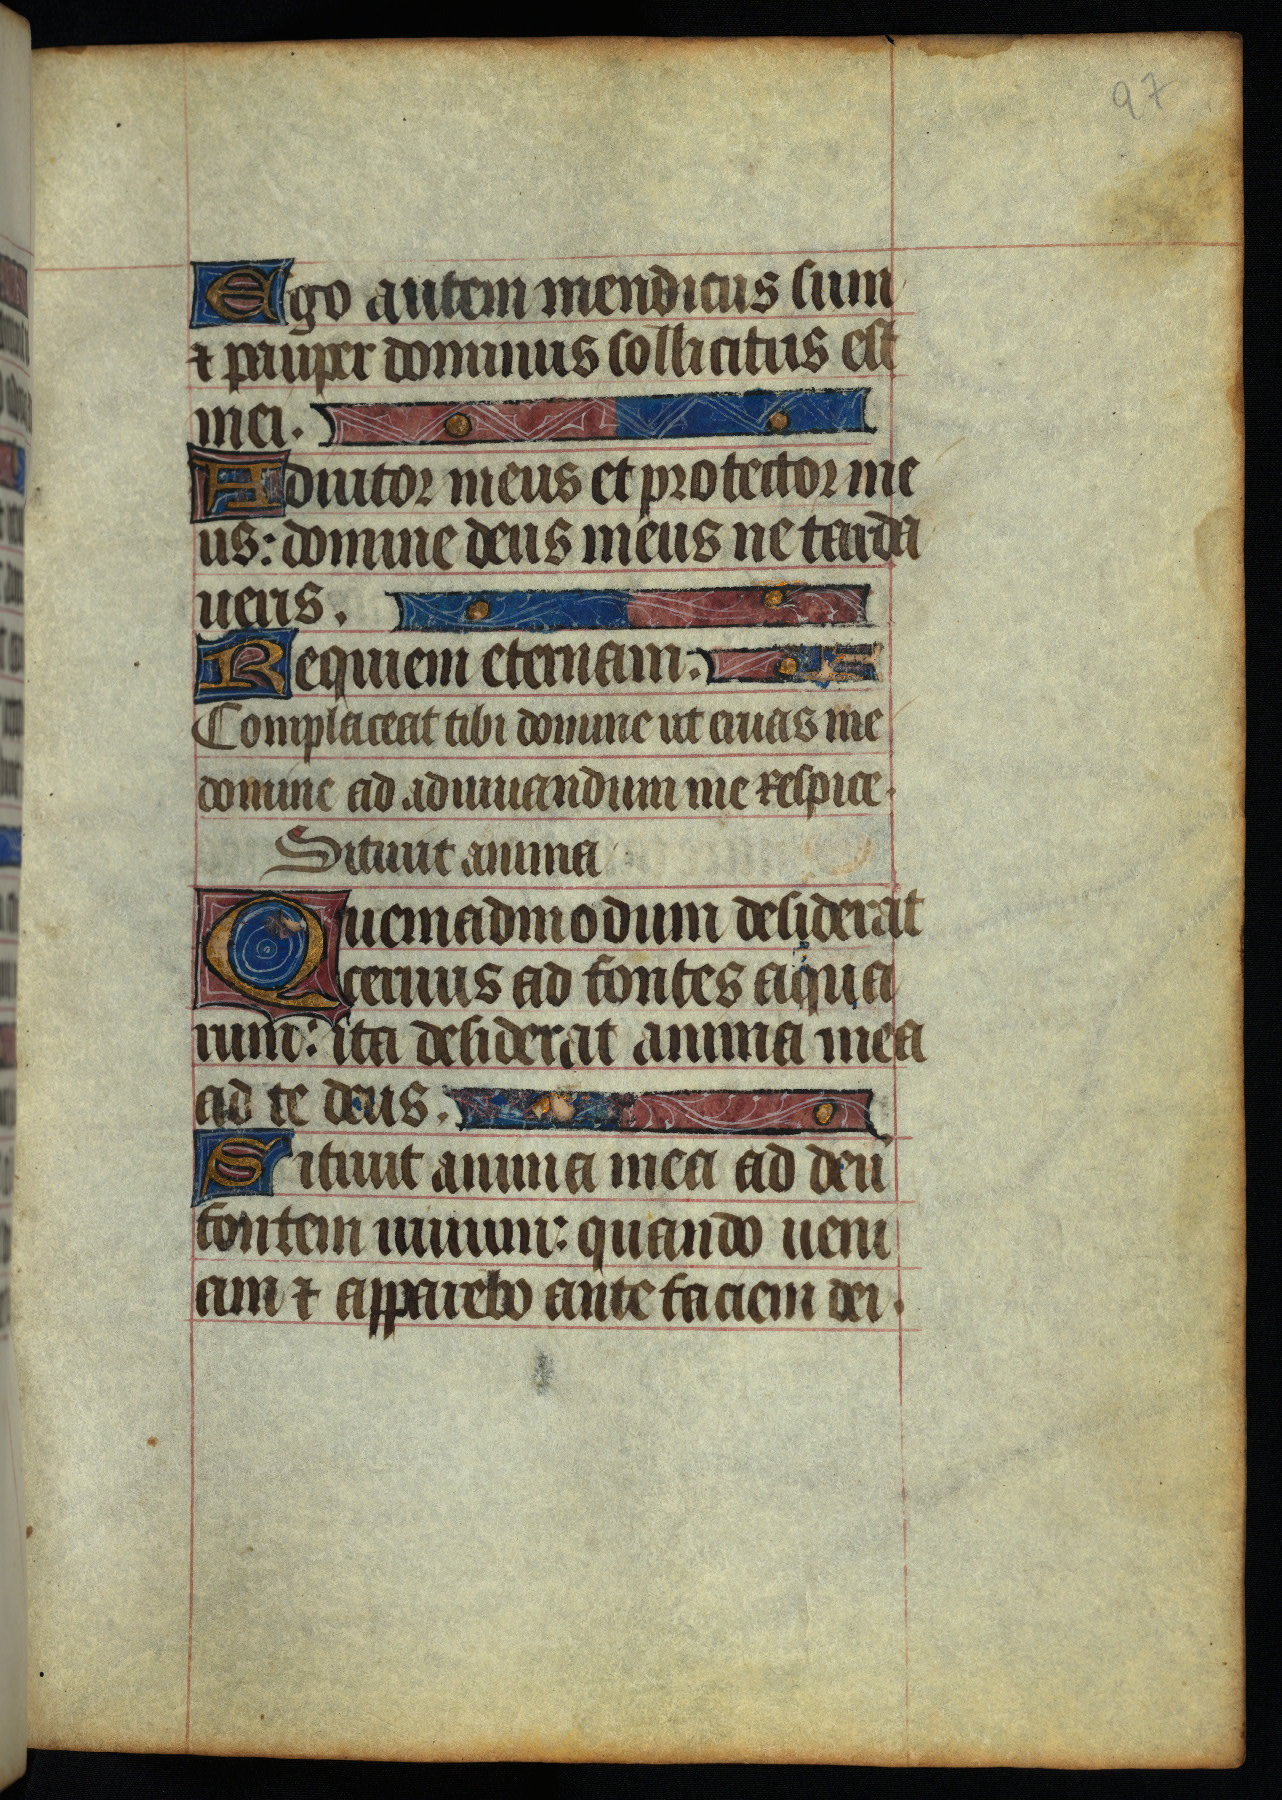 97
Ego autem mendicus sum
⁊ pauper dominus sollicitus est
mei.
Adiutor meus et protector me
us: domine deus meus ne tarda
ueris.
Requiem eternam.
Complaceat tibi domine ut eruas me
domine ad adiuuandum me respice.
Sitiuit anima
Quemadmodum desiderat
ceruus ad fontes aqua
rum: ita desiderat anima mea
ad te deus.
Sitiuit anima mea ad deū
fontem uiuum: quando ueni
am ⁊ apparebo ante faciem dei.